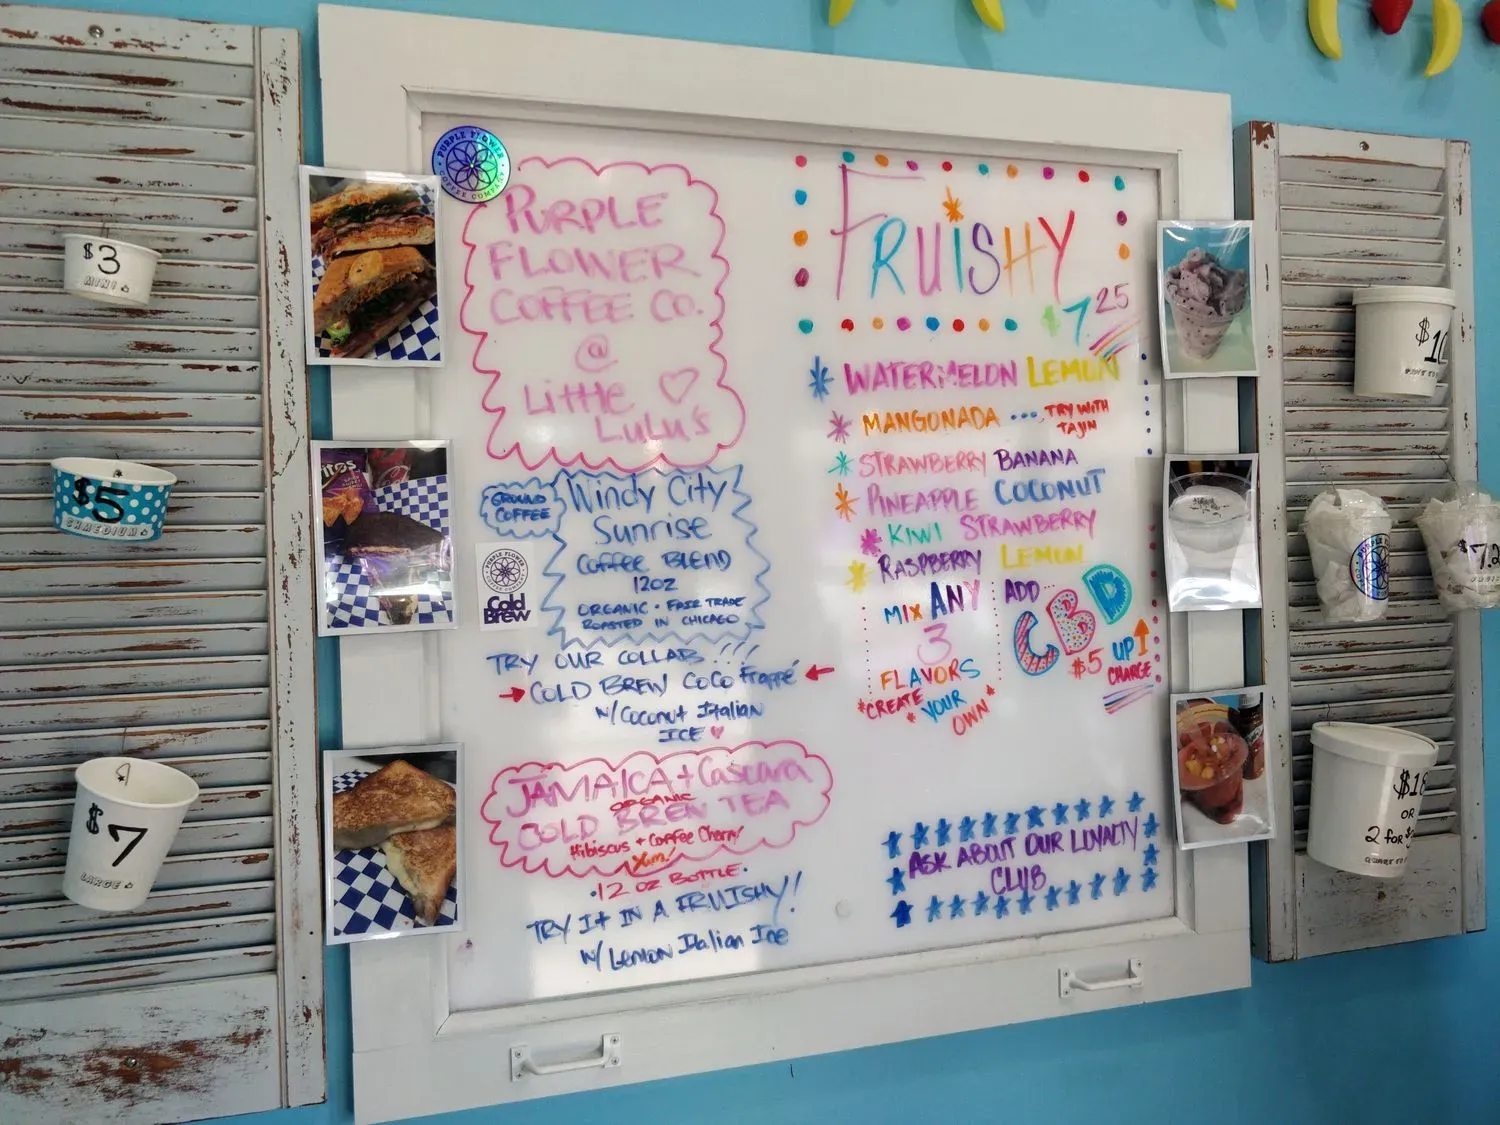 $3
MINI
$5
SMAEDIUM
$7
LARGE
PURPLE FLOWER
COFFEE COMPANY
PURPLE
FLOWER
COFFEE CO.
@
Little
LuLu's
GROUND
COFFEE
Windy City
Sunrise
COFFEE BLEND
12OZ
ORGANIC • FAIR TRADE
ROASTED IN CHICAGO
PURPLE FLOWER
Cold
Brew
TRY OUR COLLAB!!!
COLD BREW COCO Frappé
W/Coconut Italian
ICE
JAMAICA + Cascara
ORGANIC
COLD BREW TEA
Hibiscus + Coffee Cherry
Yum!
•12 OZ BOTTLE•
TRY It IN A FRUISHY!
W/ Lemon Italian Ice
FRUiSHY
$7.25
WATERMELON LEMON
MANGONADA ... TRY WITH
TAJIN
STRAWBERRY BANANA
PINEAPPLE COCONUT
KIWI STRAWBERRY
RASPBERRY LEMON
MIX ANY
3
FLAVORS
*CREATE
*YOUR
OWN*
ADD
CBD
$5 UP
CHARGE
ASK ABOUT OUR LOYALTY
CLUB
OR
2 FOR